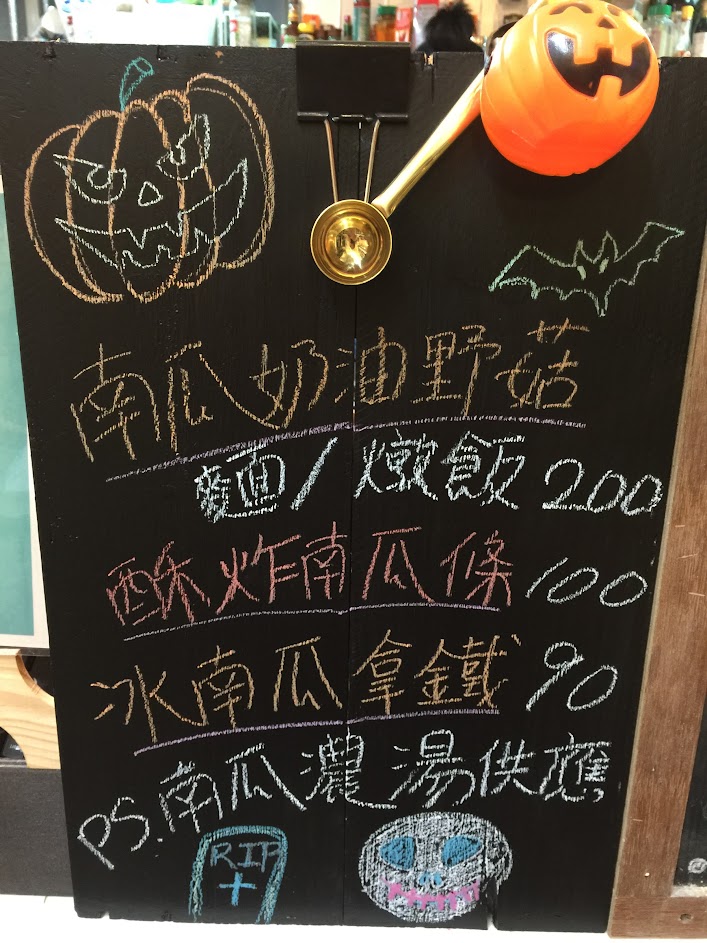 南瓜奶油野菇
麵/燉飯 200
酥炸南瓜條 100
冰南瓜拿鐵 90
PS.南瓜濃湯供應
RIP